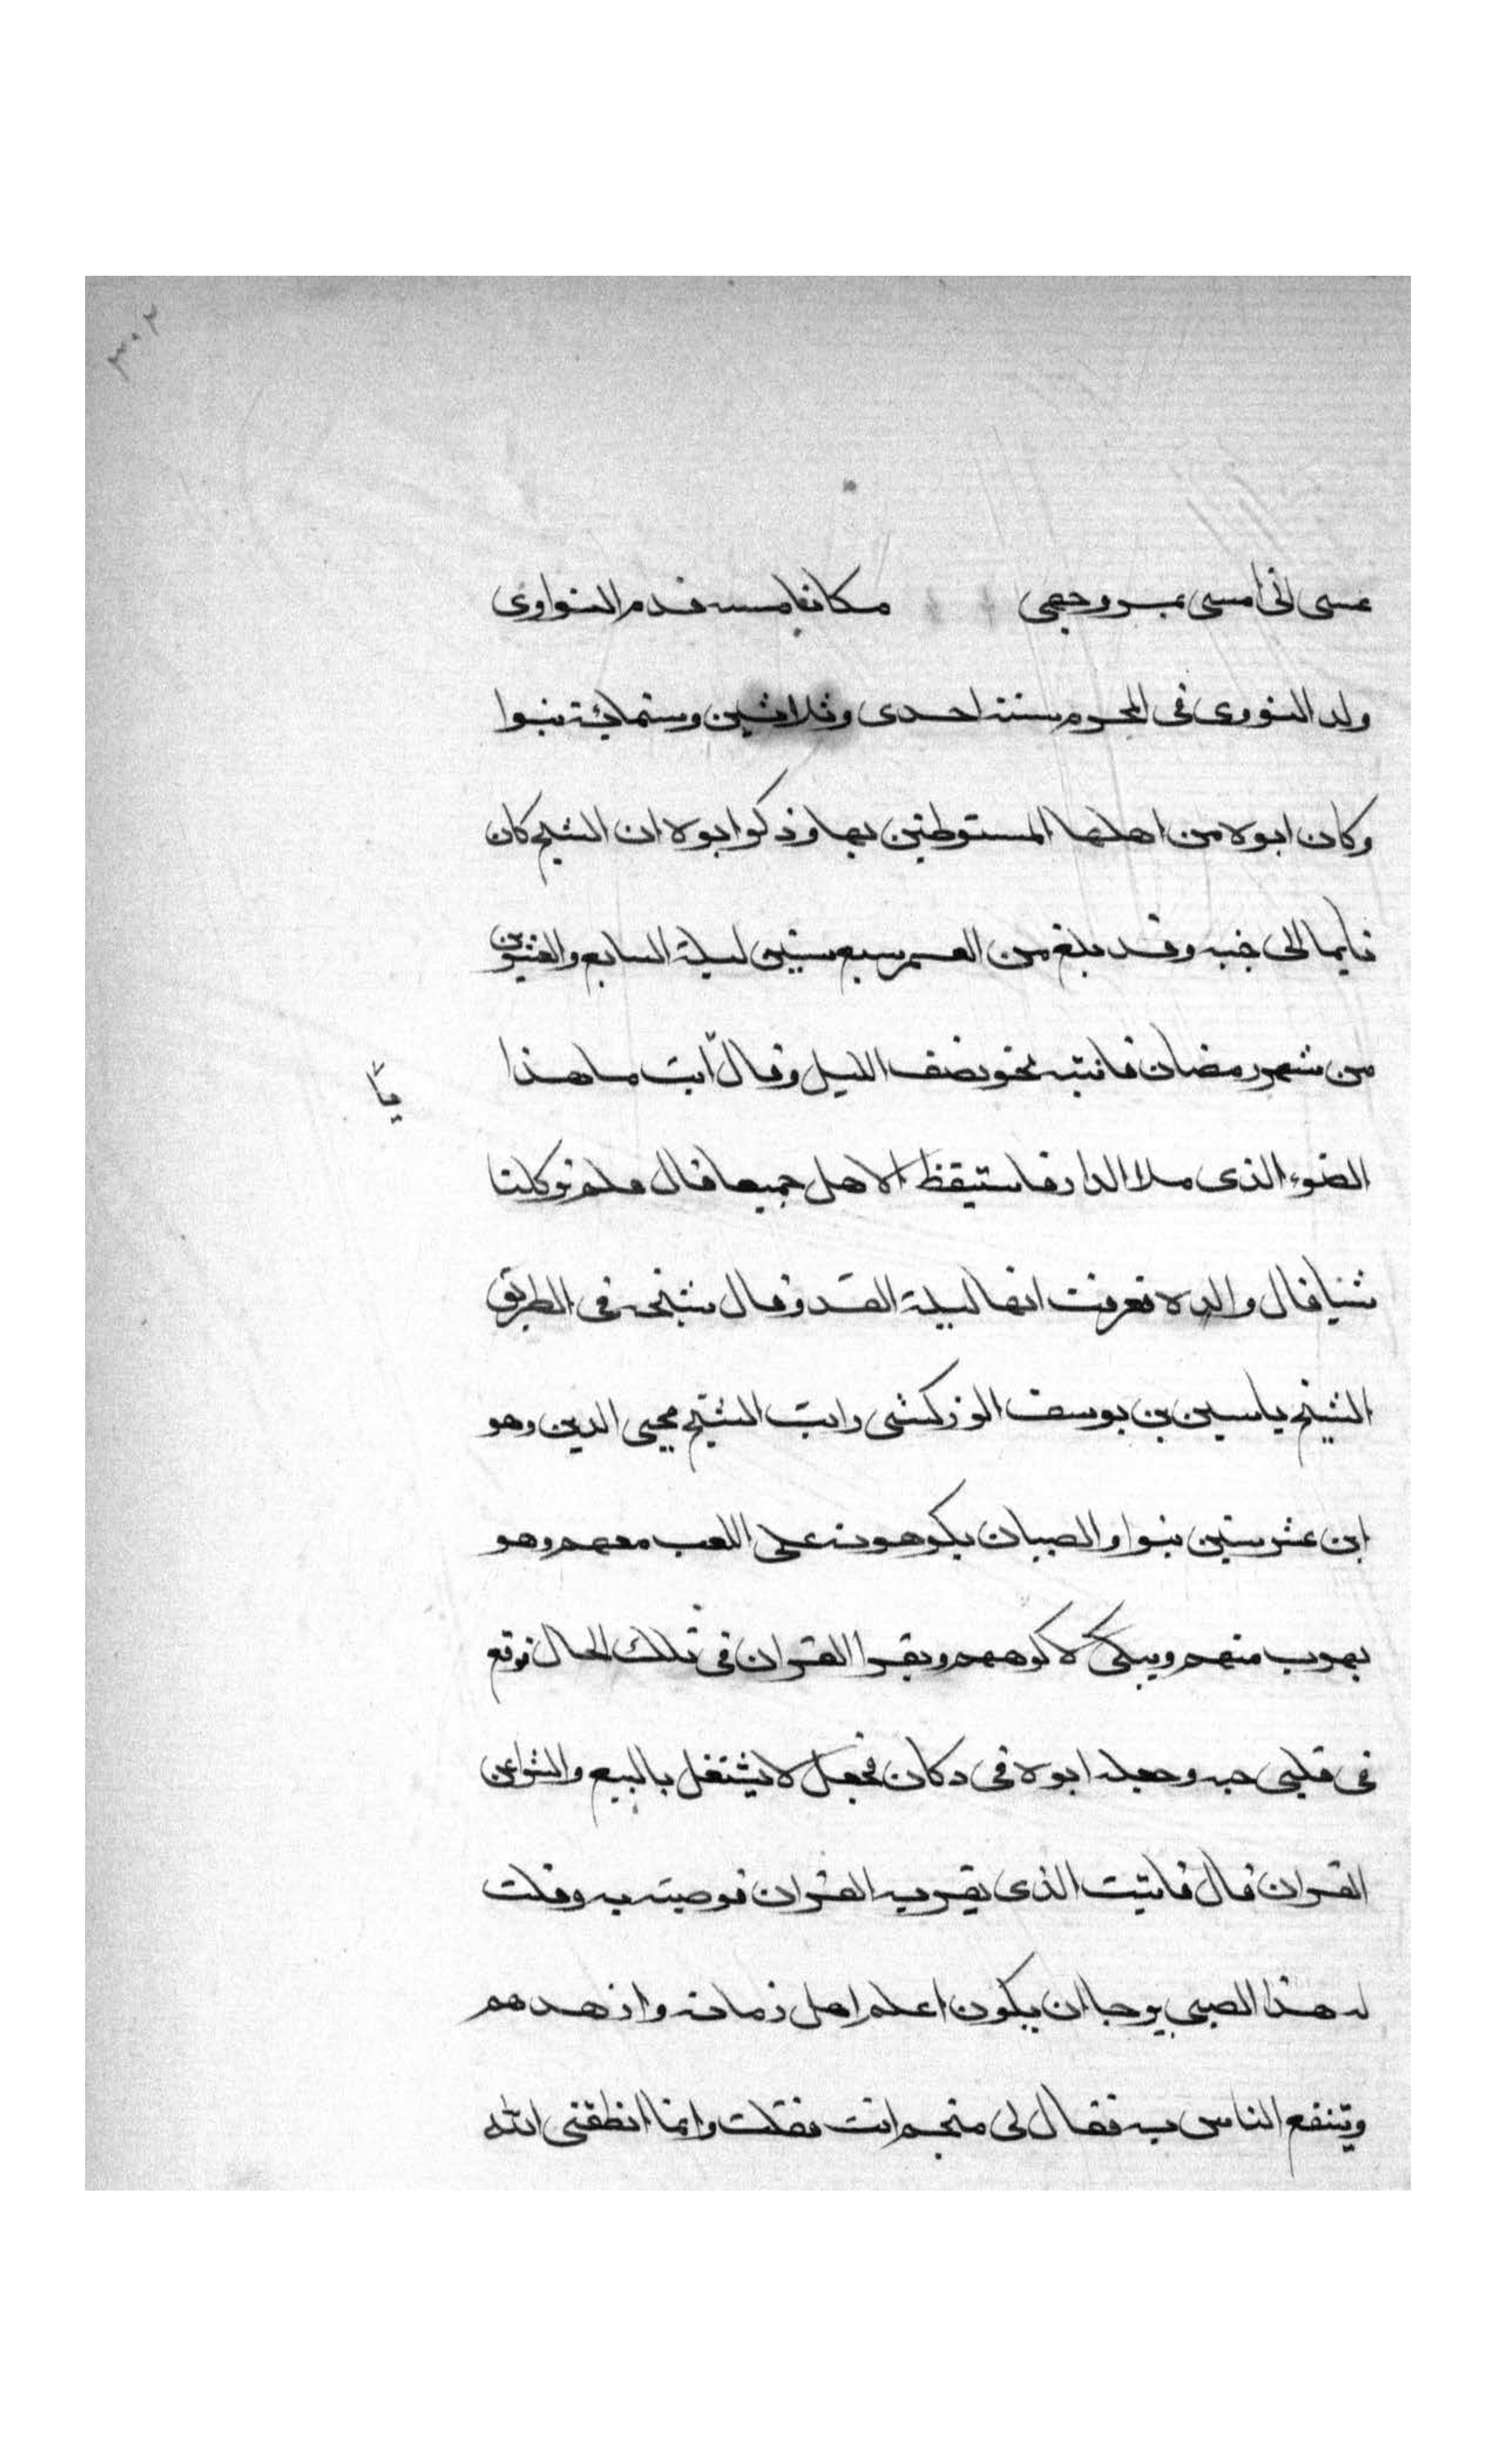 ٣٠٢
عسى انى امس بحر وجهى مكانا مسه قدم النواوى
ولد النووى فى المحرم سنة احدى وثلاثين وستمائة بنوا
وكان ابوه من اهلها المستوطنين بها وذكر ابوه ان الشيخ كان
نايما الى جنبه وقد بلغ من العمر سبع سنين ليلة السابع والعشرين
من شهر رمضان فانتبه نحو نصف الليل وقال ابت ما هذا
يا
الضوء الذى ملا الدار فاستيقظ الاهل جميعا قال فلم نر كلنا
شيا قال والده فعرفت انها ليلة القدر وقال شيخه فى الطريق
الشيخ ياسين بن يوسف الزركشى رايت الشيخ محيى الدين وهو
ابن عشر سنين بنوا والصبيان يكرهونه على اللعب معهم وهو
يهرب منهم ويبكى لاكرههم ويقرا القران فى تلك الحال فوقع
فى قلبى حبه وجعله ابوه فى دكان فجعل لا يشتغل بالبيع والشرا عن
القران قال فاتيت الذى يقريه القران فوصيته به وقلت
له هذا الصبى يرجا ان يكون اعلم اهل زمانه وازهدهم
وينتفع الناس به فقال لى منجم انت فقلت وانما انطقنى الله